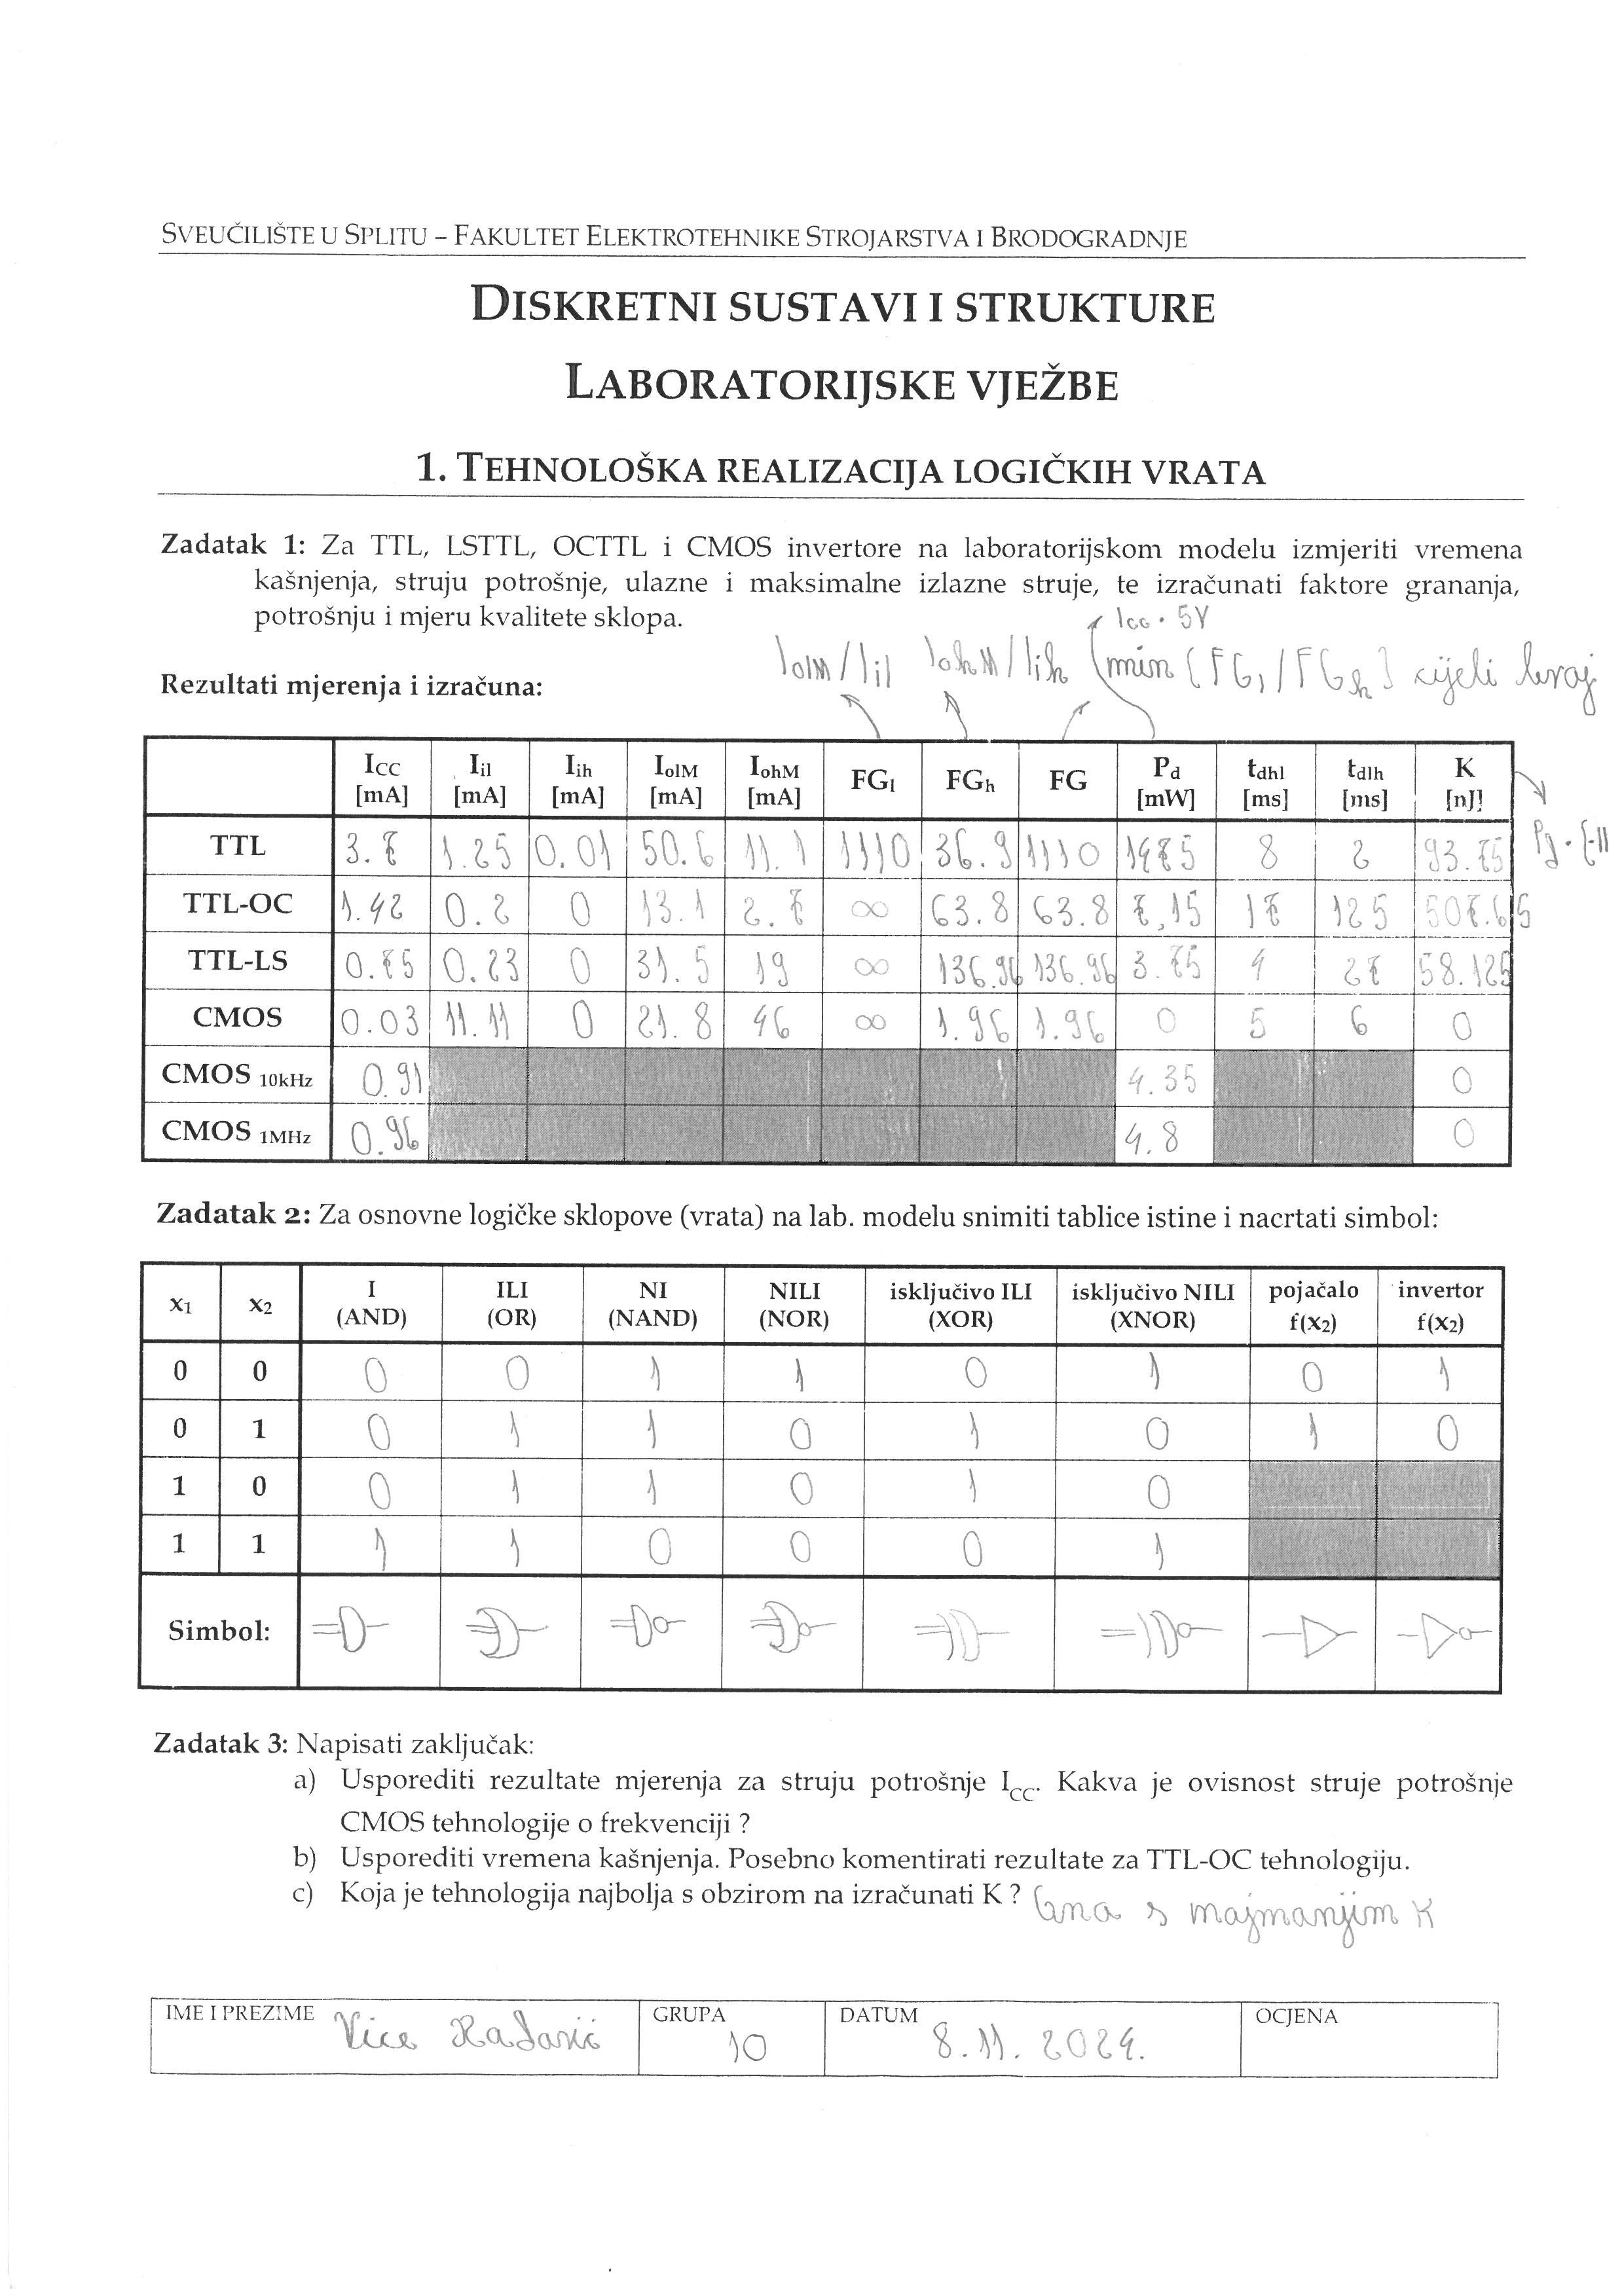 SVEUČILIŠTE U SPLITU – FAKULTET ELEKTROTEHNIKE STROJARSTVA I BRODOGRADNJE
DISKRETNI SUSTAVI I STRUKTURE
LABORATORIJSKE VJEŽBE
1. TEHNOLOŠKA REALIZACIJA LOGIČKIH VRATA
Zadatak 1: Za TTL, LSTTL, OCTTL i CMOS invertore na laboratorijskom modelu izmjeriti vremena
kašnjenja, struju potrošnje, ulazne i maksimalne izlazne struje, te izračunati faktore grananja,
potrošnju i mjeru kvalitete sklopa.
Icc · 5V
IolM / Iil IohM / Iih min { FGl / FGh } cijeli broj
Rezultati mjerenja i izračuna:
ICC [mA] Iil [mA] Iih [mA] IolM [mA] IohM [mA] FGl FGh FG Pd [mW] tdhl [ms] tdlh [ms] K [nJ]
TTL 3.7 1.25 0.01 50.6 11.1 1110 36.9 1110 1875 8 2 93.75
TTL-OC 1.42 0.2 0 13.1 2.7 ∞ 63.8 63.8 7,15 17 125 507.65
TTL-LS 0.75 0.23 0 31.5 19 ∞ 136.96 136.96 3.75 4 27 58.125
CMOS 0.03 11.11 0 21.8 46 ∞ 1.96 1.96 0 5 6 0
CMOS 10kHz 0.91 4.35 0
CMOS 1MHz 0.96 4.8 0
Zadatak 2: Za osnovne logičke sklopove (vrata) na lab. modelu snimiti tablice istine i nacrtati simbol:
x1 x2 I (AND) ILI (OR) NI (NAND) NILI (NOR) isključivo ILI (XOR) isključivo NILI (XNOR) pojačalo f(x2) invertor f(x2)
0 0 0 0 1 1 0 1 0 1
0 1 0 1 1 0 1 0 1 0
1 0 0 1 1 0 1 0
1 1 1 1 0 0 0 1
Simbol:
Zadatak 3: Napisati zaključak:
a) Usporediti rezultate mjerenja za struju potrošnje ICC. Kakva je ovisnost struje potrošnje
CMOS tehnologije o frekvenciji ?
b) Usporediti vremena kašnjenja. Posebno komentirati rezultate za TTL-OC tehnologiju.
c) Koja je tehnologija najbolja s obzirom na izračunati K ? Ona s najmanjim K
IME I PREZIME Vice Radanić GRUPA 10 DATUM 8.11.2024. OCJENA